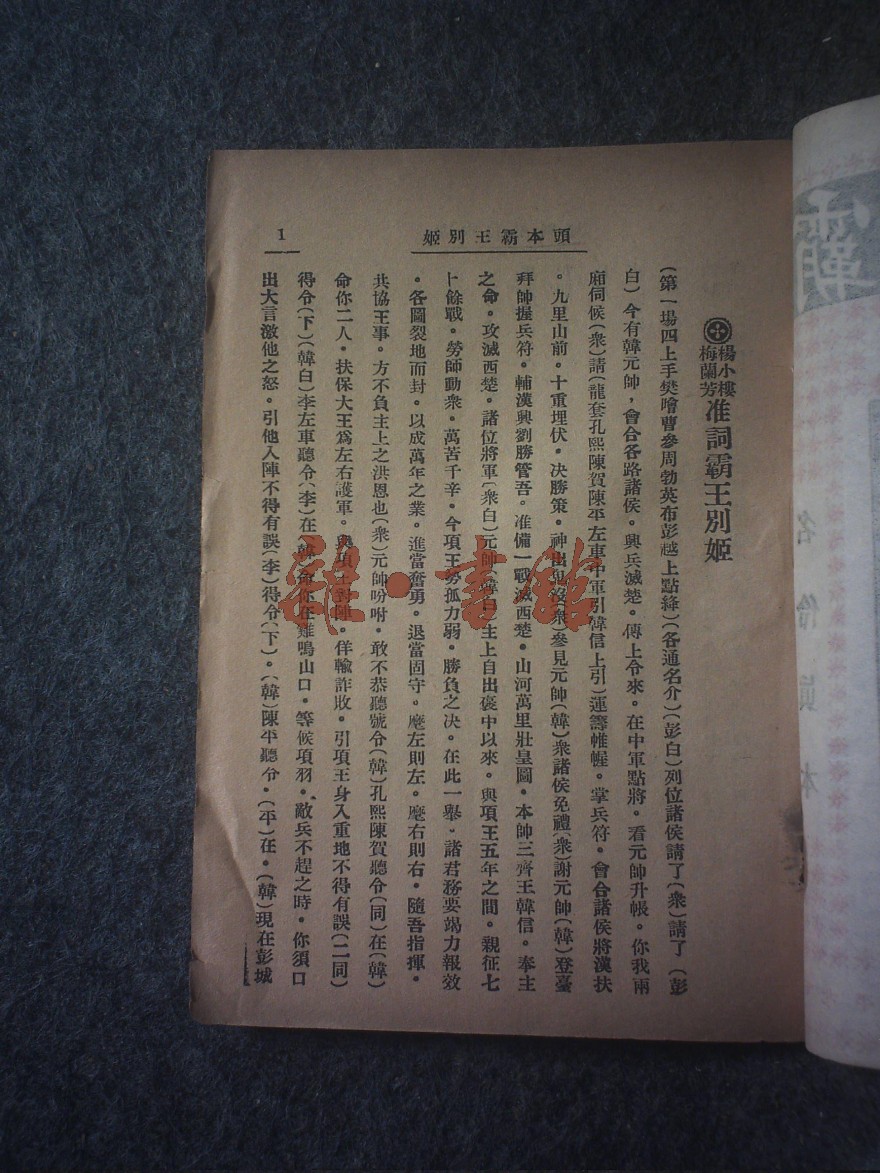 頭本霸王別姬
1
楊小樓
梅蘭芳
准詞霸王別姬
(第一場四上手樊噲曹參周勃英布彭越上點絳)(各通名介)(彭白)列位諸侯請了(衆)請了(彭
白)今有韓元帥，會合各路諸侯。興兵滅楚。傳上令來。在中軍點將。看元帥升帳。你我兩
廂伺候(衆)請(龍套孔熙陳賀陳平左車中軍引韓信上引)運籌帷幄。掌兵符。會合諸侯將漢扶
。九里山前。十重埋伏。決勝策。神出鬼沒(衆)參見元帥(韓)衆諸侯免禮(衆)謝元帥(韓)登臺
拜帥握兵符。輔漢興劉勝管吾。准備一戰滅西楚。山河萬里壯皇圖。本帥三齊王韓信。奉主
之命。攻滅西楚。諸位將軍(衆白)元帥(韓白)主上自出褒中以來。與項王五年之間。親征七
十餘戰。勞師動衆。萬苦千辛。今項王勢孤力弱。勝負之决。在此一舉。諸君務要竭力報效
。各圖裂地而封。以成萬年之業。進當奮勇。退當固守。麾左則左。麾右則右。隨吾指揮。
共協王事。方不負主上之洪恩也(衆)元帥吩咐。敢不恭聽號令(韓)孔熙陳賀聽令(同)在(韓)
命你二人。扶保大王爲左右護軍。與項王對陣。佯輸詐敗。引項王身入重地不得有誤(二同)
得令(下)(韓白)李左車聽令(李)在(韓)命你在雞鳴山口。等候項羽。敵兵不趕之時。你須口
出大言激他之怒。引他入陣不得有誤(李)得令(下)。(韓)陳平聽令。(平)在。(韓)現在彭城
雜·書館
霸
名伶眞本